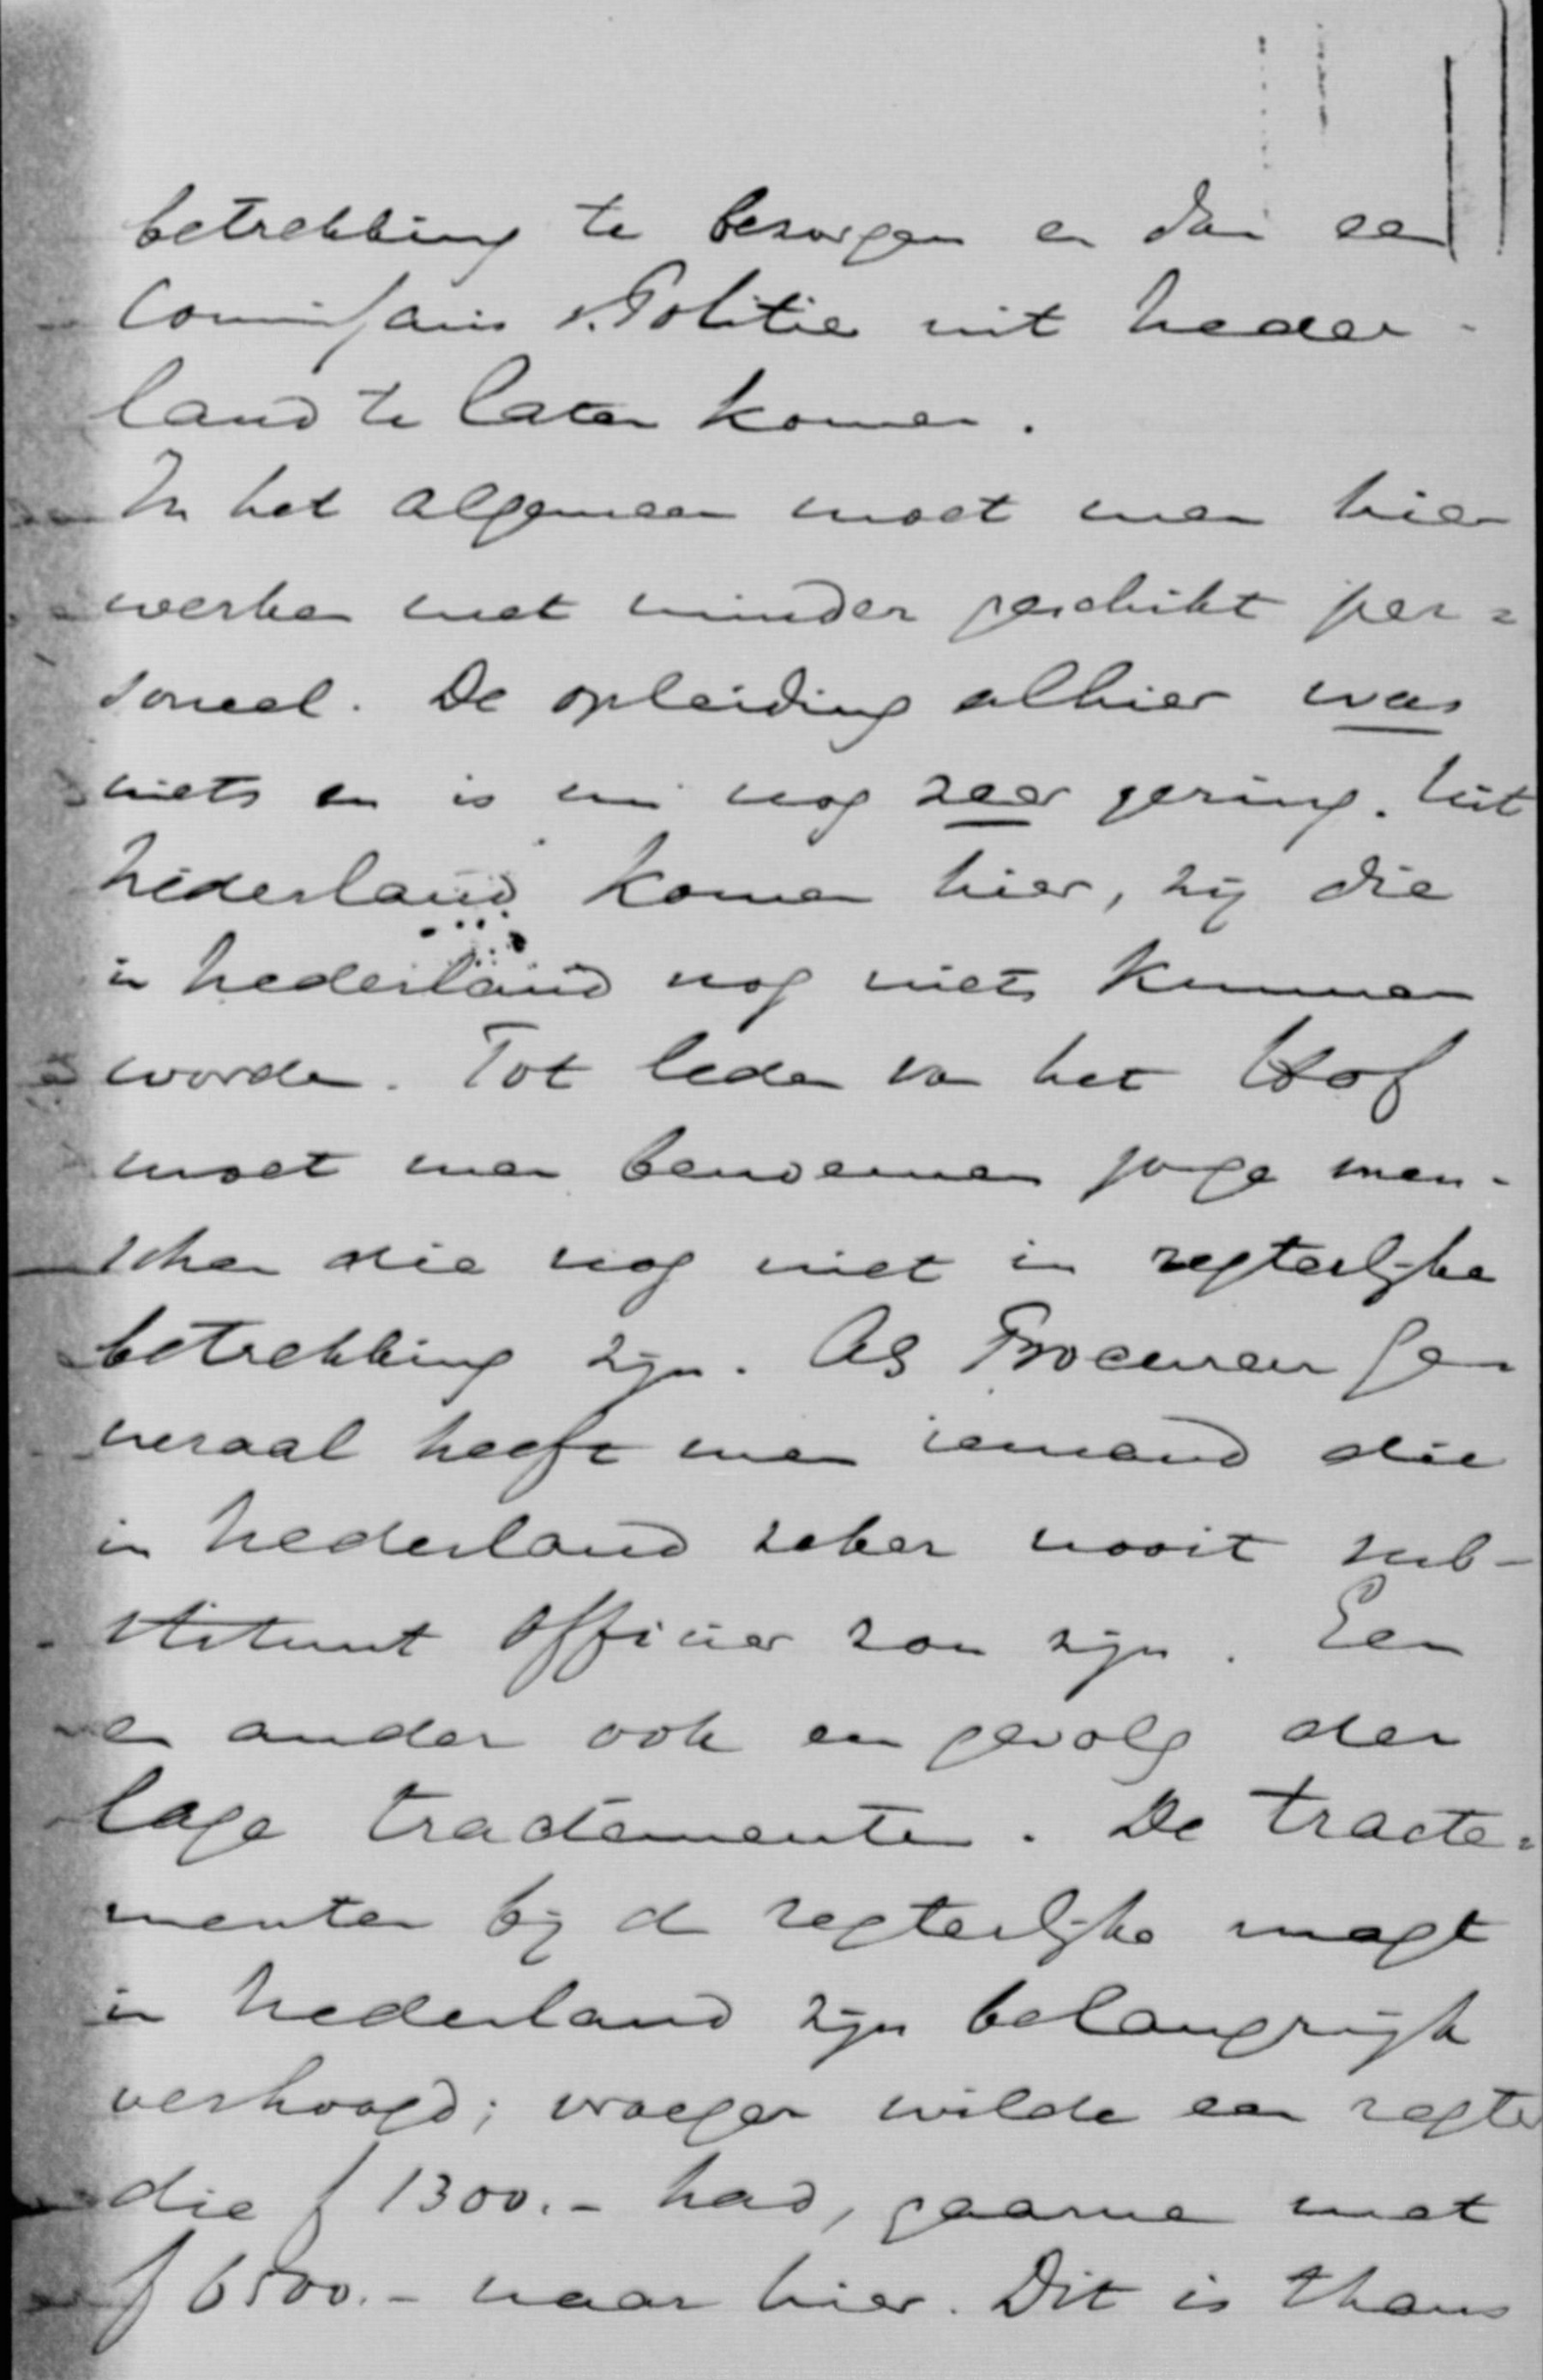 betrekking te bezorgen en dan een
Commissaris v. Politie uit Neder-
land te laten komen.
In het algemeen moet men hier
werken met minder geschikt per=
soneel. De opleiding alhier was
niets en is nu nog zeer gering. Uit
Nederland komen hier, zij die
in Nederland nog niets kunnen
worden. Tot leden van het Hof
moet men benoemen jonge men-
schen die nog niet in regterlijke
betrekking zijn. Als Procureur Ge-
neraal heeft men iemand die
in Nederland zeker nooit sub-
stituut officier zou zijn. Een
en ander ook een gevolg der
lage tractementen. De tracte=
menten bij de regterlijke magt
in Nederland zijn belangrijk
verhoogd; vroeger wilde een regter
die f 1300.- had, gaarne met
f 6500.- naar hier. Dit is thans